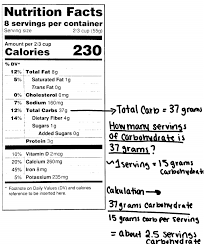 Nutrition Facts
8 servings per container
Serving size 2/3 cup (55g)
Amount per 2/3 cup
Calories 230
% DV*
12% Total Fat 8g
5% Saturated Fat 1g
Trans Fat 0g
0% Cholesterol 0mg
7% Sodium 160mg
12% Total Carbs 37g
14% Dietary Fiber 4g
Sugars 1g
Added Sugars 0g
Protein 3g
10% Vitamin D 2mcg
20% Calcium 260mg
45% Iron 8mg
5% Potassium 235mg
* Footnote on Daily Values (DV) and calories
reference to be inserted here.
→Total Carb = 37 grams
How many servings
of Carbohydrate is
37 grams?
1 serving = 15 grams
Carbohydrate
Calculation →
37 grams Carbohydrate
15 grams carb per serving
= about 2.5 servings
Carbohydrate